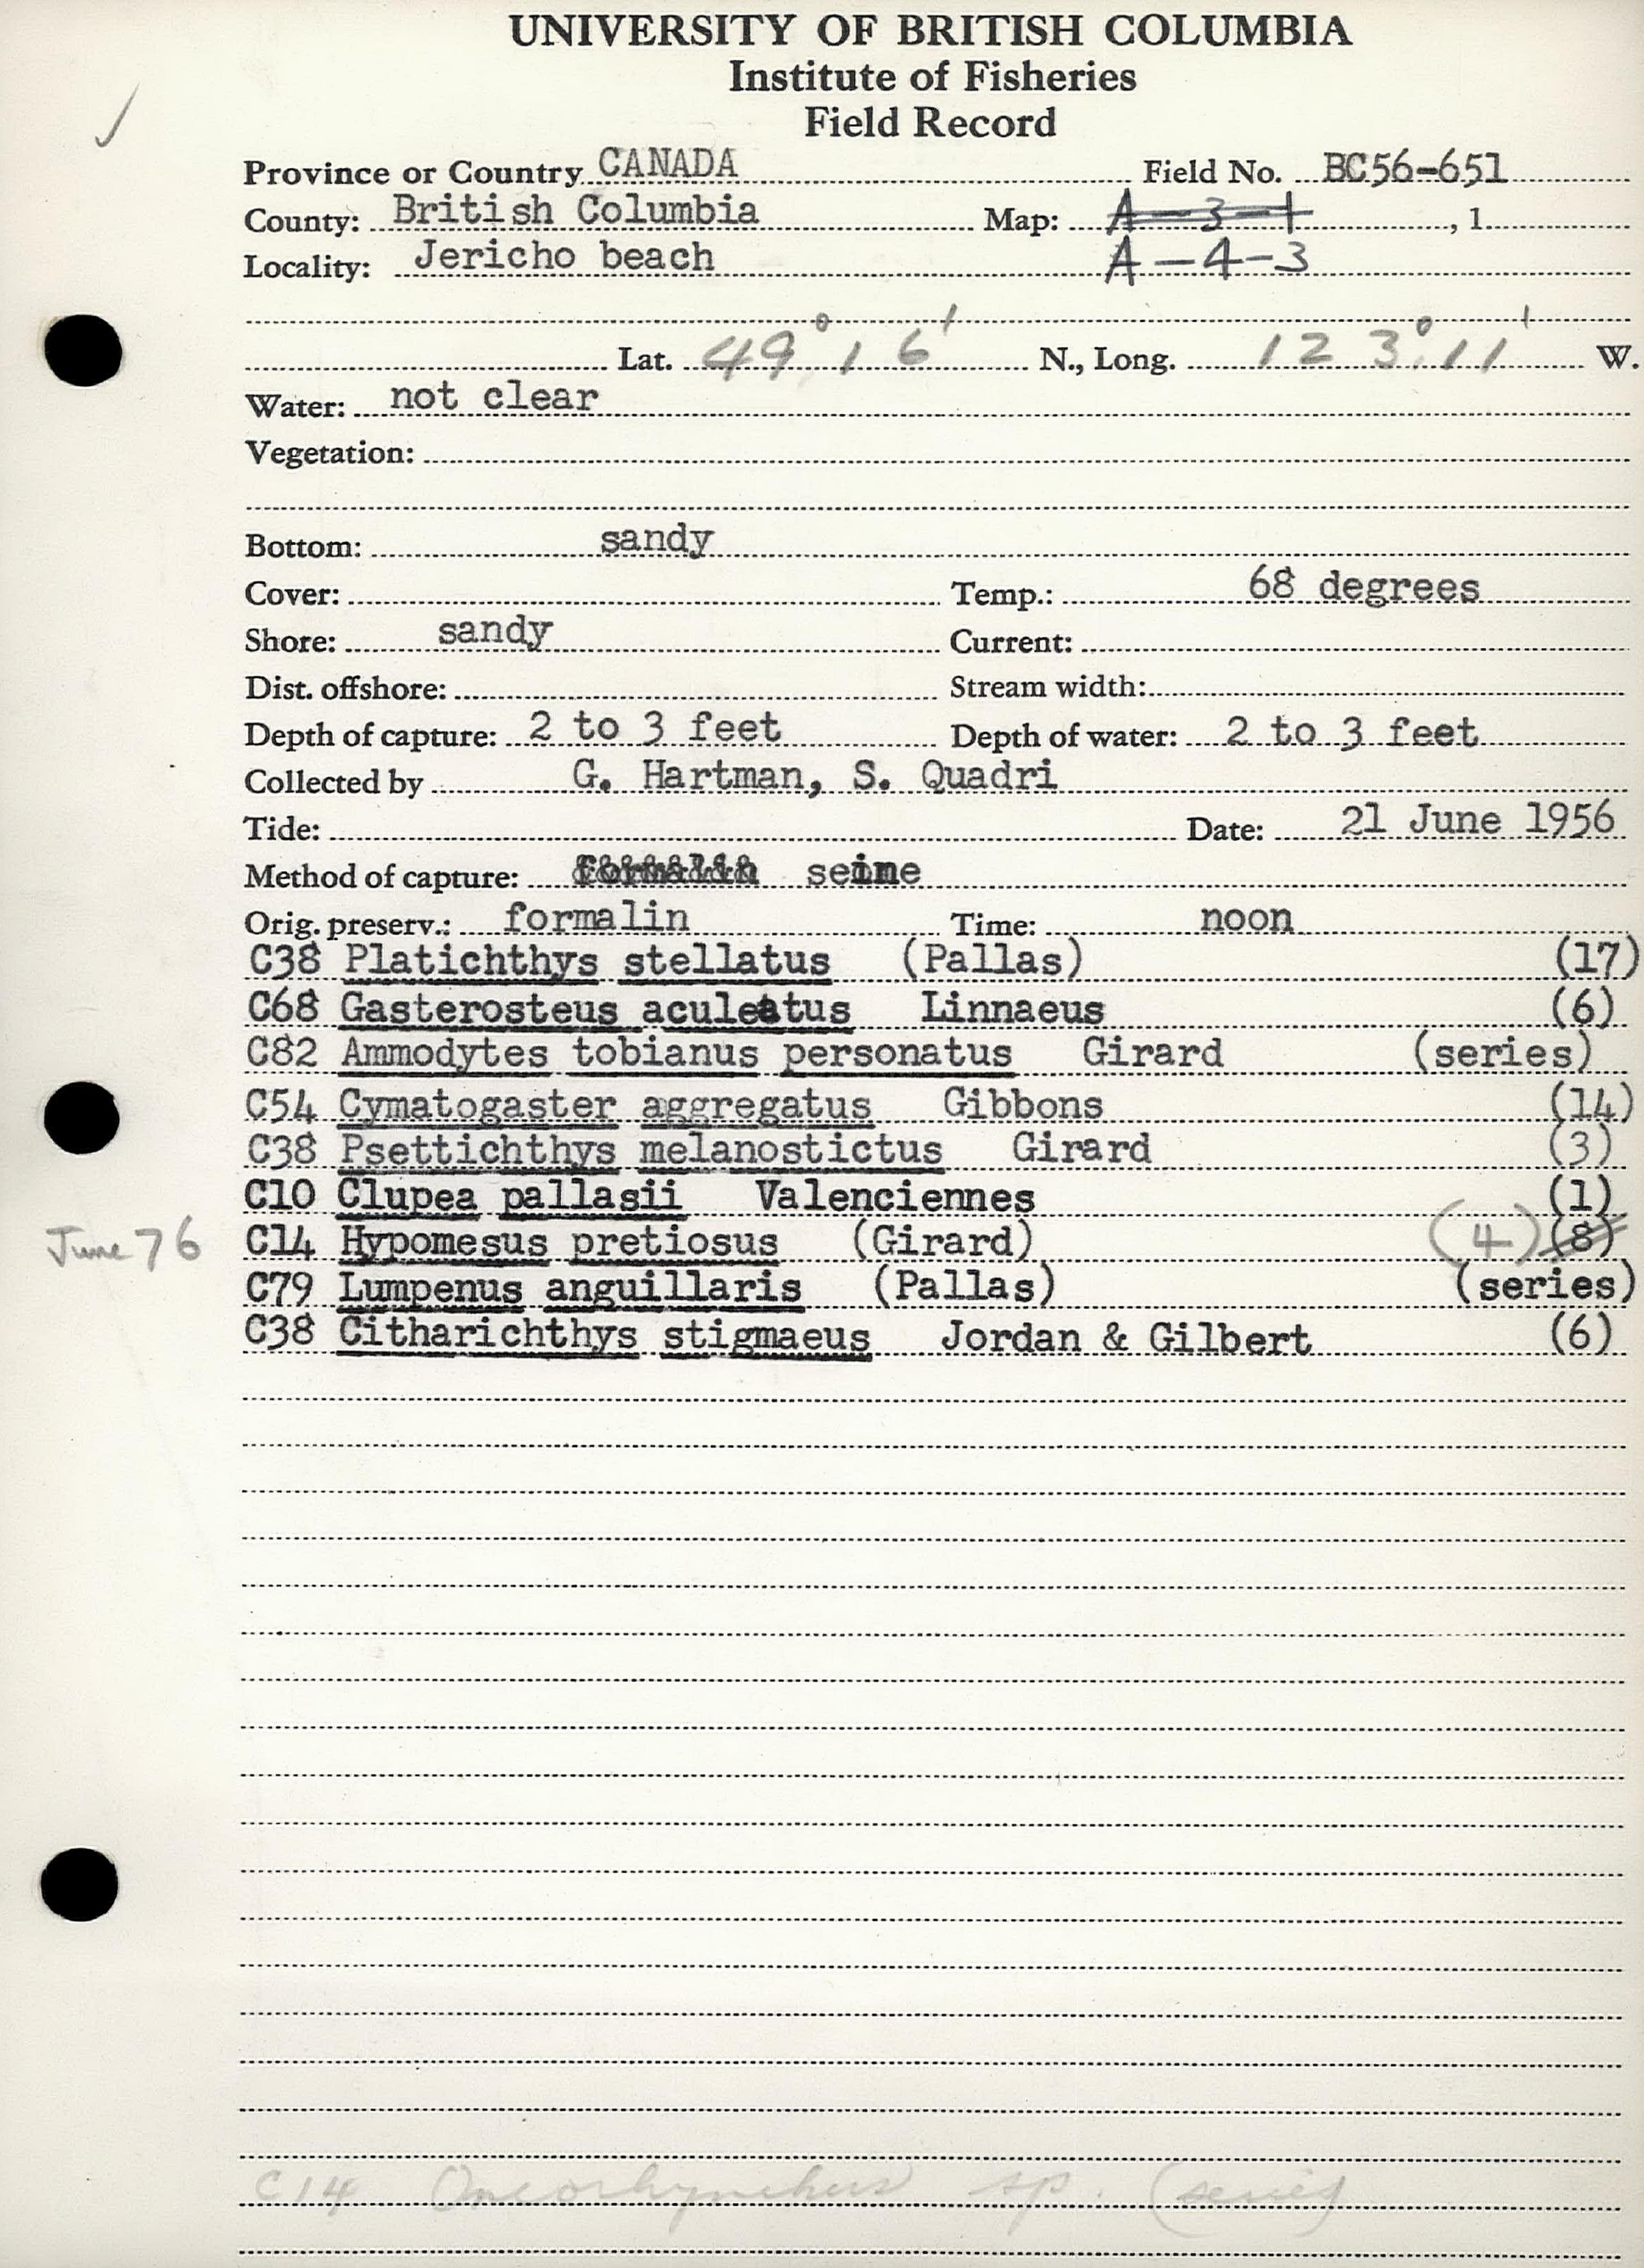 UNIVERSITY OF BRITISH COLUMBIA
Institute of Fisheries
Field Record
Province or Country CANADA Field No. BC56-651
County: British Columbia Map: A-3-1, 1
Locality: Jericho beach A-4-3
Lat. 49° 16' N., Long. 123° 11' W.
Water: not clear
Vegetation:
Bottom: sandy
Cover: Temp.: 68 degrees
Shore: sandy Current:
Dist. offshore: Stream width:
Depth of capture: 2 to 3 feet Depth of water: 2 to 3 feet
Collected by G. Hartman, S. Quadri
Tide: Date: 21 June 1956
Method of capture: formalin seine
Orig. preserv.: formalin Time: noon
C38 Platichthys stellatus (Pallas) (17)
C68 Gasterosteus aculeatus Linnaeus (6)
C82 Ammodytes tobianus personatus Girard (series)
C54 Cymatogaster aggregatus Gibbons (14)
C38 Psettichthys melanostictus Girard (3)
C10 Clupea pallasii Valenciennes (1)
June 76 C14 Hypomesus pretiosus (Girard) (4) (8)
C79 Lumpenus anguillaris (Pallas) (series)
C38 Citharichthys stigmaeus Jordan & Gilbert (6)
C14 Oncorhynchus sp. (series